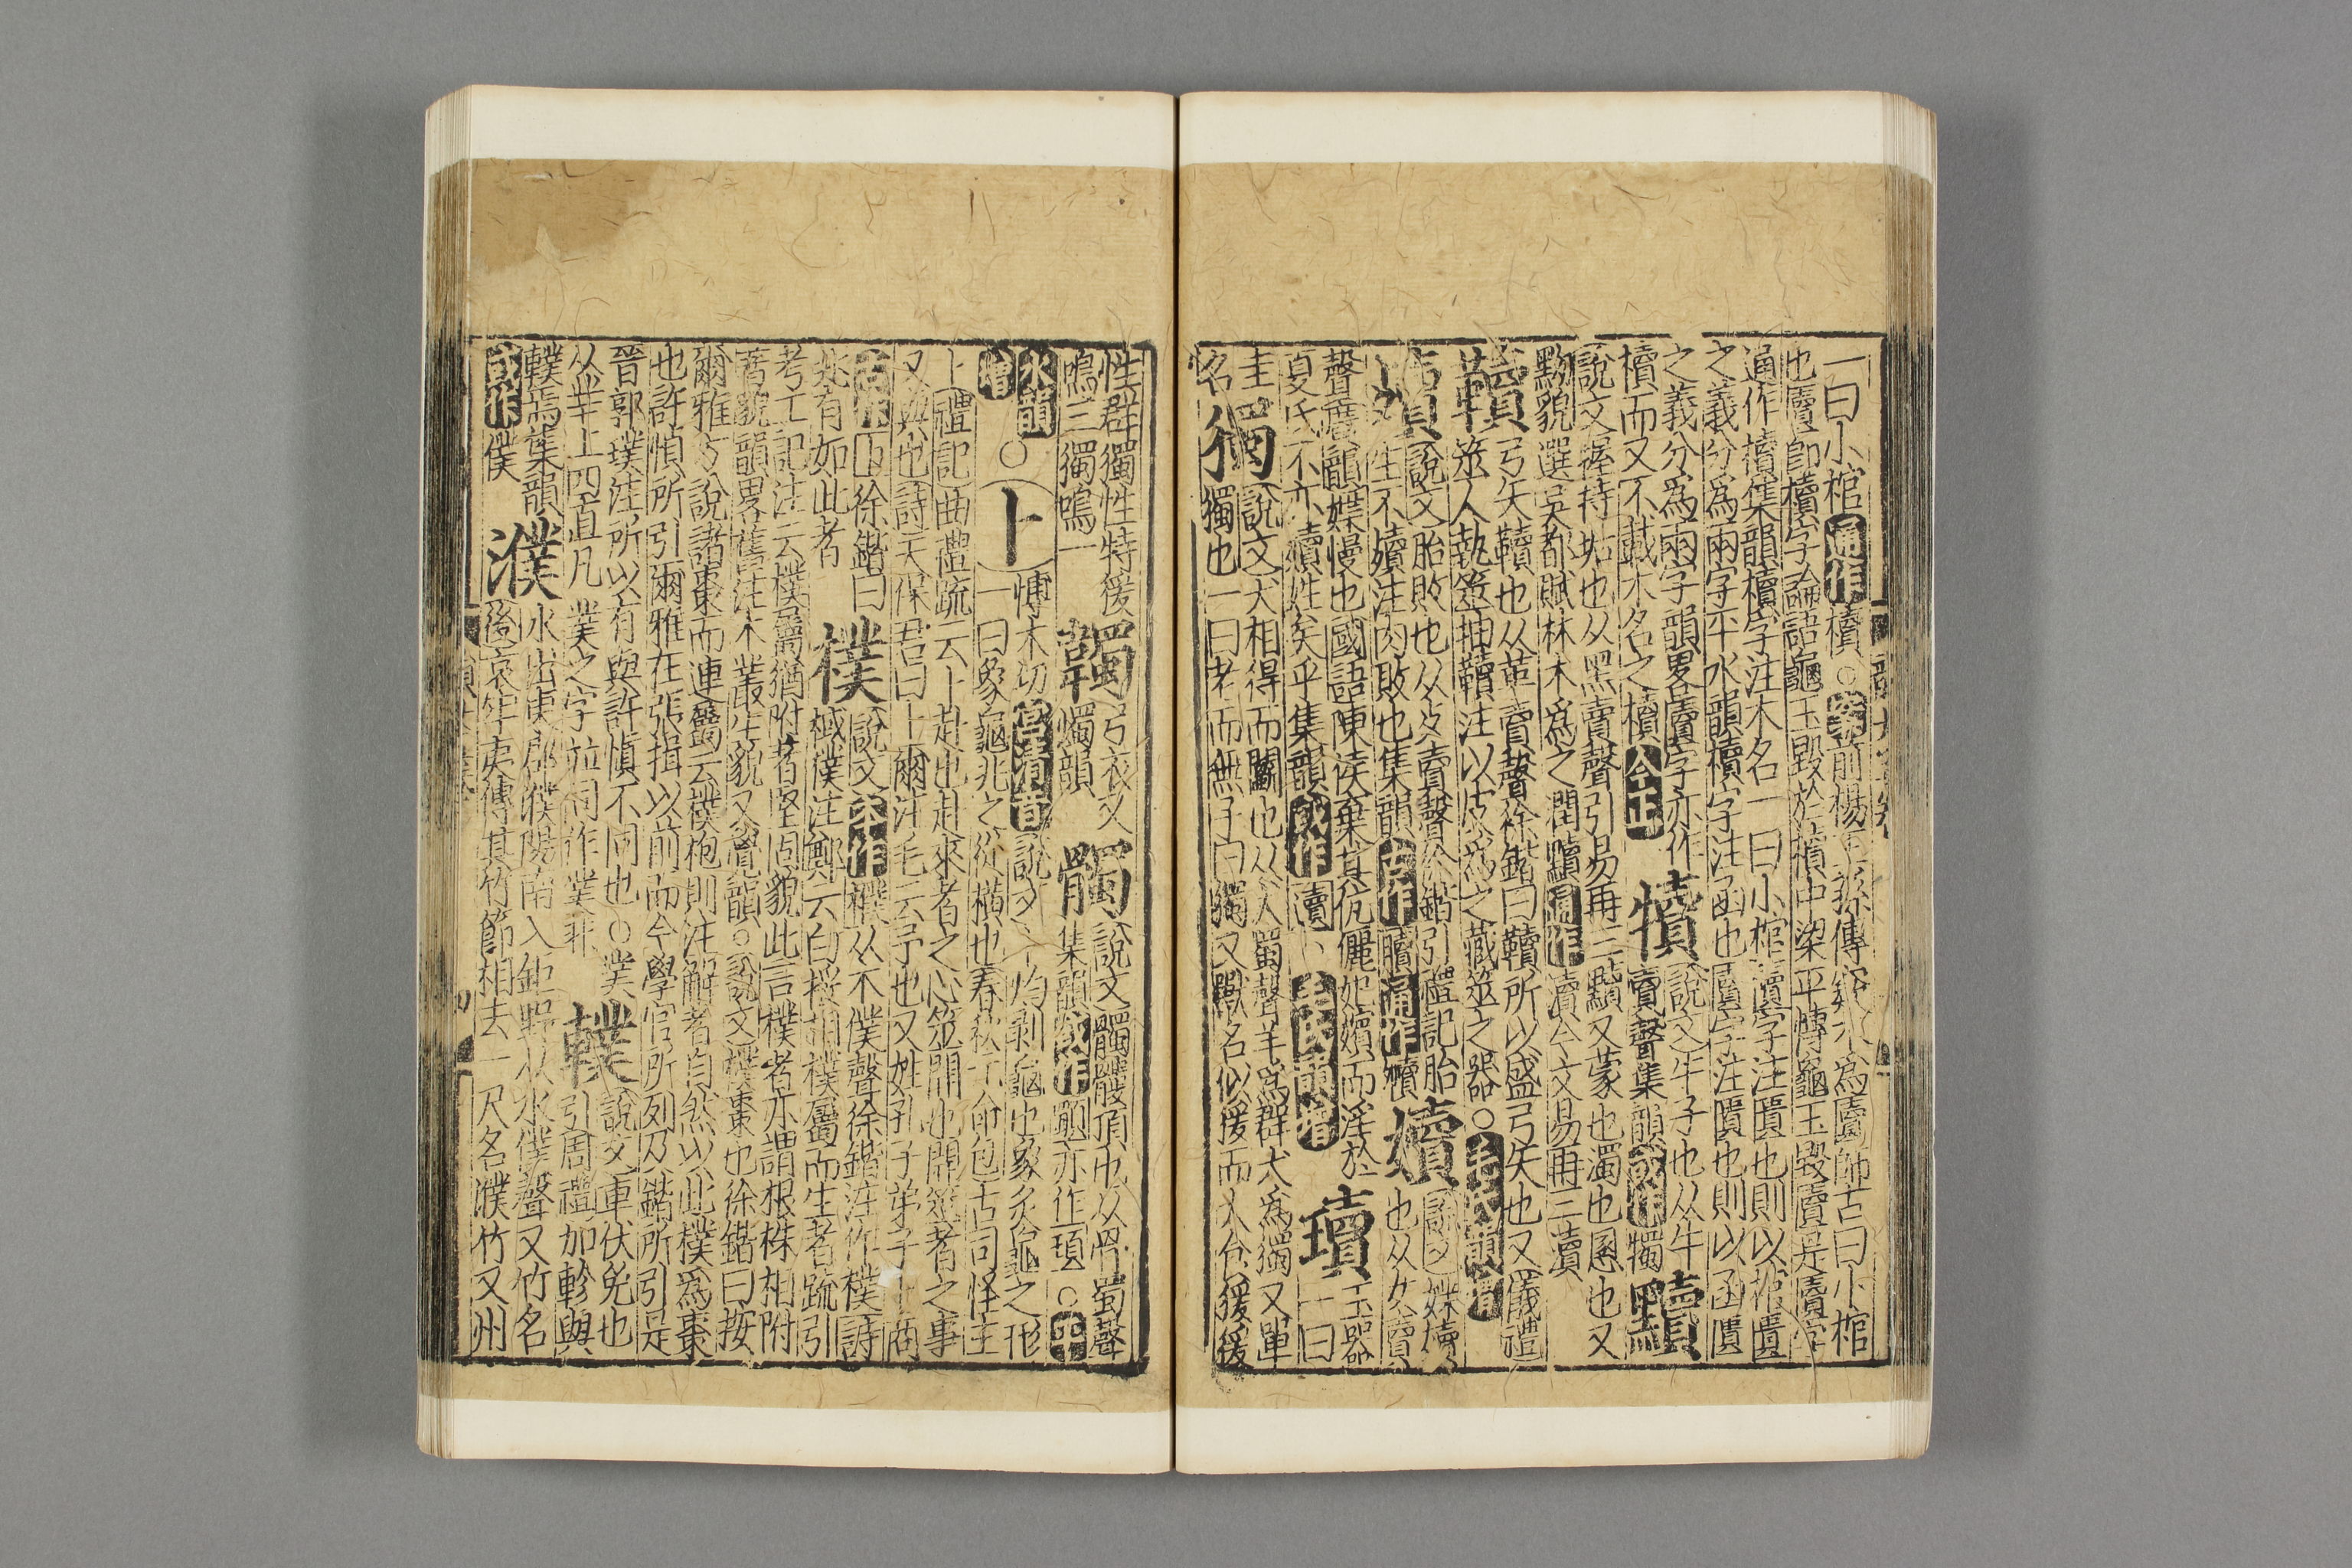 一曰小棺通作櫝○案前楊王孫傳窾木爲匵師古曰小棺
也匵即櫝字論語龜玉毀於櫝中梁平傳龜玉毀匵是匵字
通作櫝集韻櫝字注木名一曰小棺匵字注匱也則以棺匱
之義分爲兩字平水韻櫝字注函也匵字注匱也則以函匱
之義分爲兩字韻畧匵字亦作
櫝而又不載木名之櫝今正
犢
說文牛子也从牛
賣聲集韻或作㹍
黷
說文握持垢也从黑賣聲引易再三黷又蒙也濁也慁也又
黝貌選吳都賦林木爲之潤黷通作瀆今文易再三瀆
韇
弓矢韇也从革賣聲徐鍇曰韇所以盛弓矢也又儀禮
筮人執筮抽韇注以皮爲之藏筮之器○毛氏韻增
殰
說文胎敗也从歹賣聲徐鍇引禮記胎
生不殰注肉敗也集韻古作贕通作犢
嬻
說文媟嬻
也从女賣
聲廣韻媟慢也國語陳侯棄其伉儷妃嬻而淫於
夏氏不亦嬻姓矣乎集韻或作瀆 毛氏韻增
瓄
玉器
一曰
圭
名
獨
說文犬相得而鬭也从犬蜀聲羊爲群犬爲獨又單
獨也一曰老而無子曰獨又獸名似猨而大食猨猨
性群獨性特猨
鳴三獨鳴一
韣
弓衣又
燭韻
髑
說文髑髏頂也从骨蜀聲
集韻或作 亦作頊○平
水韻
增
○卜
博木切宮清音說文 灼剥龜也象灸龜之形
一曰象龜兆之從橫也春秋元命包古司怪主
卜禮記曲禮疏云卜赴也赴來者之心筮問也問筮者之事
又與也詩天保君曰卜爾注毛云予也又姓孔子弟子卜商
古作 徐鍇曰
兆有如此者
樸
說文本作 从木僕聲徐鍇注作樸詩
棫樸注鄭云白桵相樸屬而生者疏引
考工記注云樸屬猶附著堅固貌此言樸者亦謂根株相附
著貌韻畧舊注木叢生貌又覺韻○說文樸棗也徐鍇曰按
爾雅 說諸棗而連 云樸枹則注解者自然以此樸爲棗
也許慎所引爾雅在張揖以前而今學官所列乃鍇所引是
晉郭璞注所以有與許慎不同也○菐
从丵上四直凡菐之字竝同作業非
轐
說文車伏兔也
引周禮加軫與
轐焉集韻
或作僕
濮
水出東郡濮陽南入鉅野从水僕聲又竹名
後哀牢夷傳其竹節相去一尺名濮竹又州